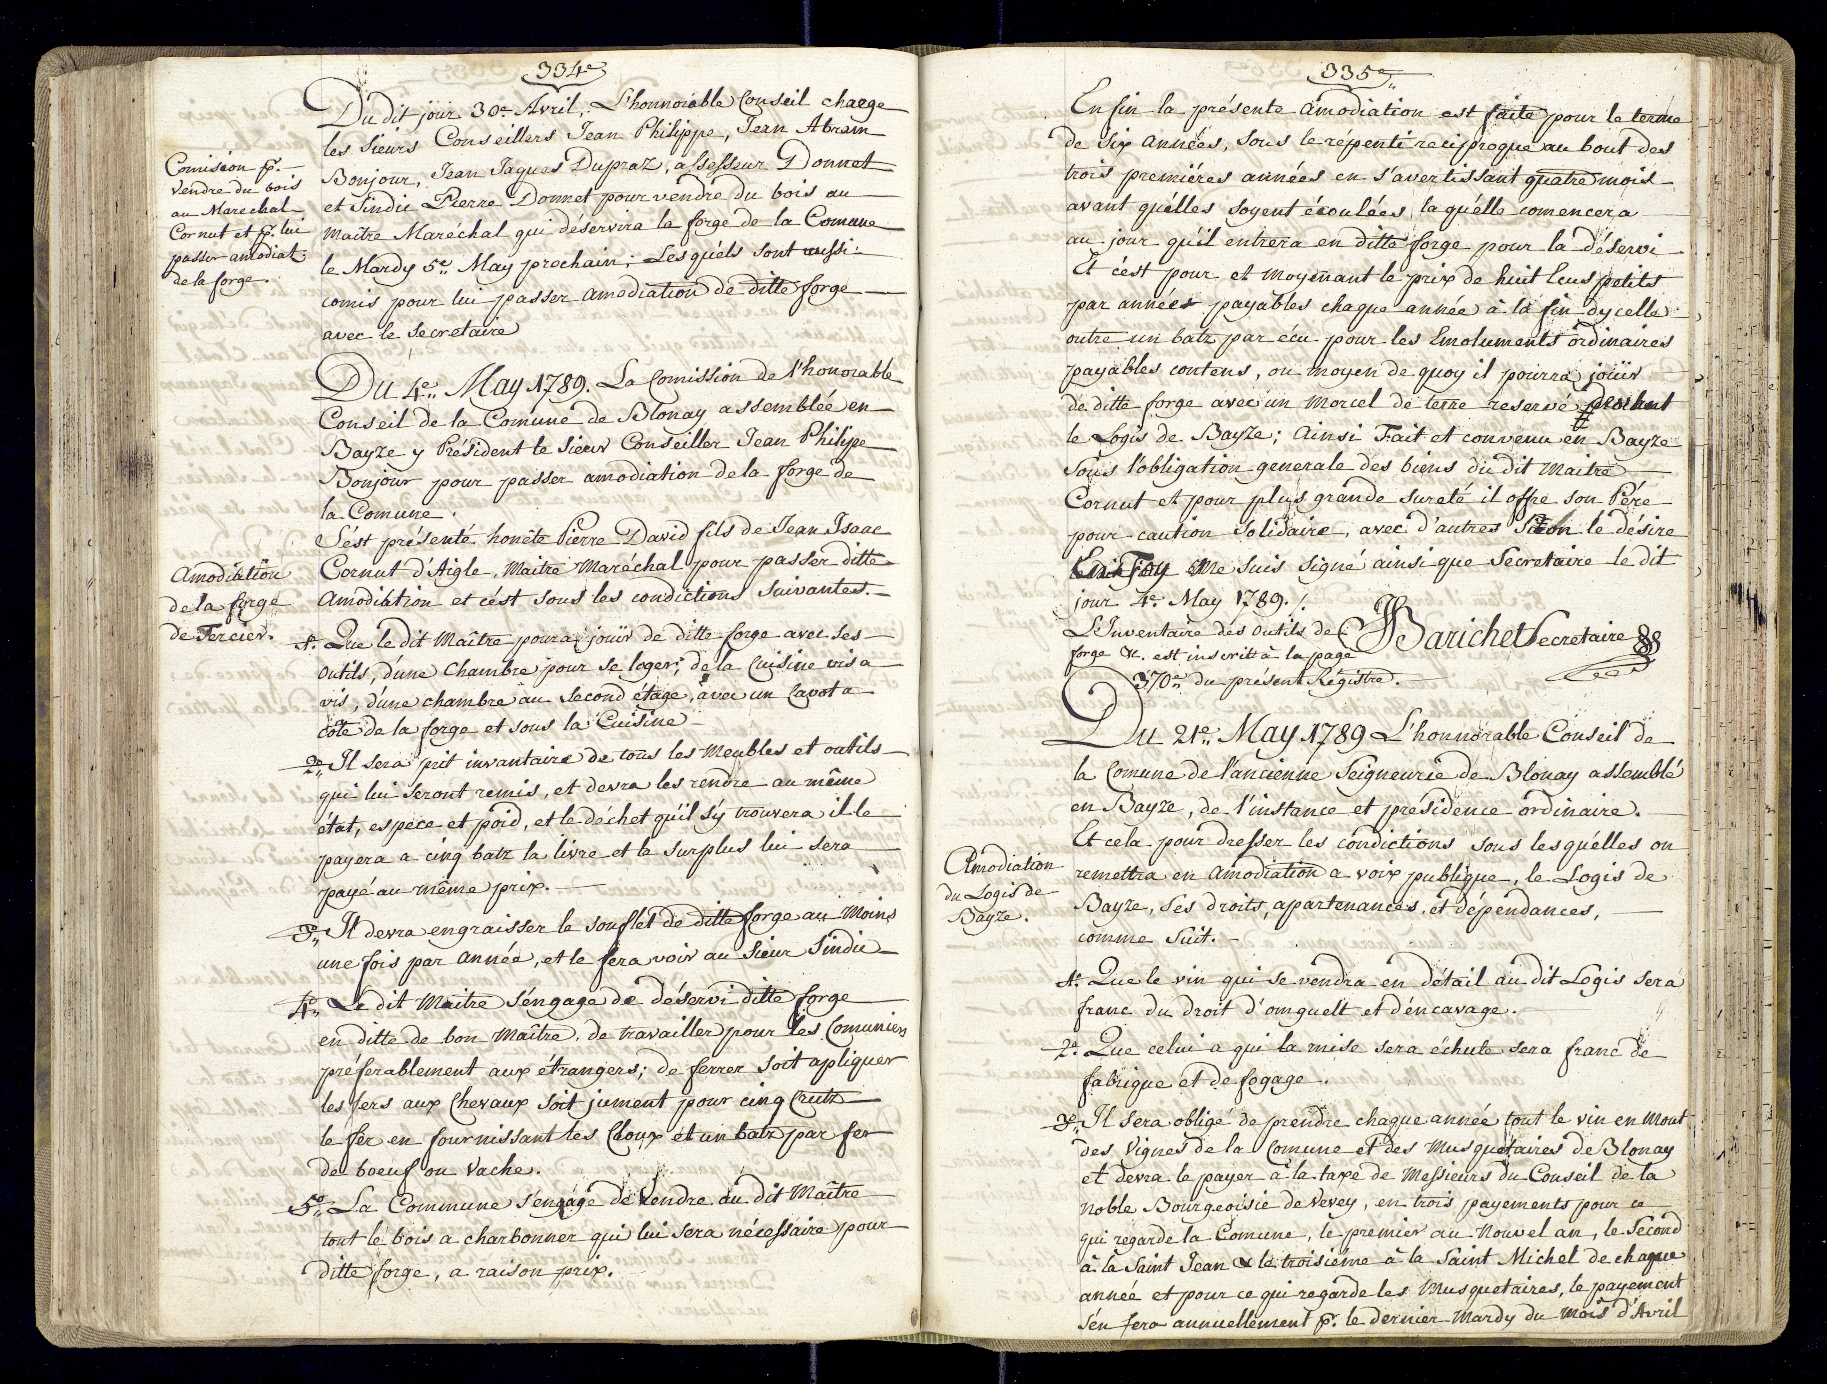 334e
Du dit jour 30e Avril, L'honnorable Conseil charge
les Sieurs Conseillers Jean Philippe, Jean Abram
Bonjour, Jean Jaques Dupraz, assesseur Donnet
et Sindic Pierre Donnet pour vendre du bois au
Maître Maréchal qui déservira la forge de la Comune
le Mardy 5e May prochain; Lesquéls sont aussi
comis pour lui passer amodiation de ditte forge
avec le Secretaire
Comision p.
vendre du bois
au Marechal
Cornut et p. lui
passer amodiat:
de la forge.
Du 4e May 1789. La Comission de l'honorable
Conseil de la Comune de Blonay assemblée en
Bayze y Président le Sieur Conseiller Jean Philippe
Bonjour pour passer amodiation de la forge de
la Comune.
S'ést présenté honête Pierre David fils de Jean Isaac
Cornut d'Aigle, Maitre Maréchal pour passer ditte
Amodiation et cést sous les condictions suivantes.
Amodiation
de la forge
de Tercier.
1o. Que le dit Maître poura joüir de ditte forge avec ses
outils, d'une Chambre pour se loger; de la Cuisine vis a
vis, d'une chambre au second étage, avec un Cavot a
côté de la forge et sous la Cuisine
2o Il sera prit invantaire de tous les Meubles et outils
qui lui seront remis, et devra les rendre au même
état, espece et poid, et le déchet qu'il s'y trouvera il le
payera a cinq batz la livre et le surplus lui sera
payé au même prix.
3o Il devra engraisser le souflét de ditte forge au Moins
une fois par année, et le fera voir au Sieur Sindic
4o Le dit Maitre s'éngage de déservi ditte forge
en ditte de bon Maître, de travailler pour les Comuniers
préferablement aux étrangers; de ferrer soit apliquer
les fers aux Chevaux soit jument pour cinq Crutz
le fer en fournissant les Cloux et un batz par fer
de boeuf ou Vache.
5o La Commune s'engage de vendre au dit Maître
tout le bois a charbonner qui lui sera nécessaire pour
ditte forge, a raison prix.
335e
Enfin la présente amodiation est faite pour le terme
de Six années, sous le répenti reciproque au bout des
trois premiéres années en s'avertissant quatre mois
avant qu'élles soyent écoulées, laquélle comencera
au jour qu'il entrera en ditte forge pour la déservi
Et c'ést pour et moyenant le prix de huit Ecus petits
par années payables chaque année à la fin dycelle
outre un batz par écu pour les Emoluments ordinaires
payables contens, ou moyen de quoy il pourra joüir
de ditte forge avec un morcel de terre reservé
le Logis de Bayze; Ainsi Fait et convenu en Bayze
sous l'obligation generale des biens du dit Maitre
Cornut et pour plus grande sureté il offre son Pére
pour caution solidaire, avec d'autres si on le désire
En Foy Me suis signé ainsi que Secretaire le dit
jour 4e May 1789./.
Barichet Secretaire
L'Inventaire des outils de
forge &c. est inscritt à la page
370e du présent Régistre.
Du 21e May 1789 L'honnorable Conseil de
la Comune de l'ancienne Seigneurie de Blonay assemblé
en Bayze, de l'instance et présidence ordinaire.
Et cela pour dresser les condictions sous lesquélles on
remettra en amodiation a voix publique, le Logis de
Bayze, ses droits, apartenances, et dépéndances,
comme suit.
Amodiation
du Logis de
Bayze.
1o. Que le vin qui se vendra en détail au dit Logis sera
franc du droit d'omguelt et d'éncavage.
2o. Que celui a qui la mise sera échute sera franc de
fabrique et de fogage.
3o Il sera obligé de prendre chaque année tout le vin en Mout
des Vignes de la Comune et des Musquetaires de Blonay
et devra le payer à la taxe de Messieurs du Conseil de la
noble Bourgeoisie de Vevey, en trois payements pour ce
qui régarde la Comune, le premier au Nouvel an, le Second
à la Saint Jean & le troisiéme à la Saint Michel de chaque
année et pour ce qui regarde les Musquetaires, le payement
s'én fera annuellement p. le dernier Mardy du mois d'Avril